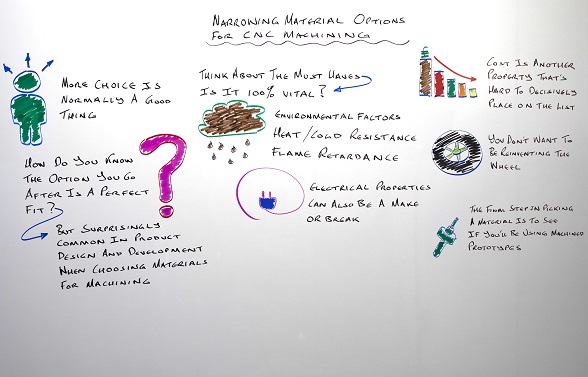 Narrowing Material Options
For CNC Machining
More Choice Is
Normally A Good
Thing
How Do You Know
The Option You Go
After Is A Perfect
Fit?
But Surprisingly
Common In Product
Design And Development
When Choosing Materials
For Machining
Think About The Must Haves
Is It 100% Vital?
Environmental Factors
Heat/Cold Resistance
Flame Retardance
Electrical Properties
Can Also Be A Make
Or Break
Cost Is Another
Property That's
Hard To Decisively
Place On The List
You Don't Want To
Be Reinventing The
Wheel
The Final Step In Picking
A Material Is To See
If You'll Be Using Machined
Prototypes